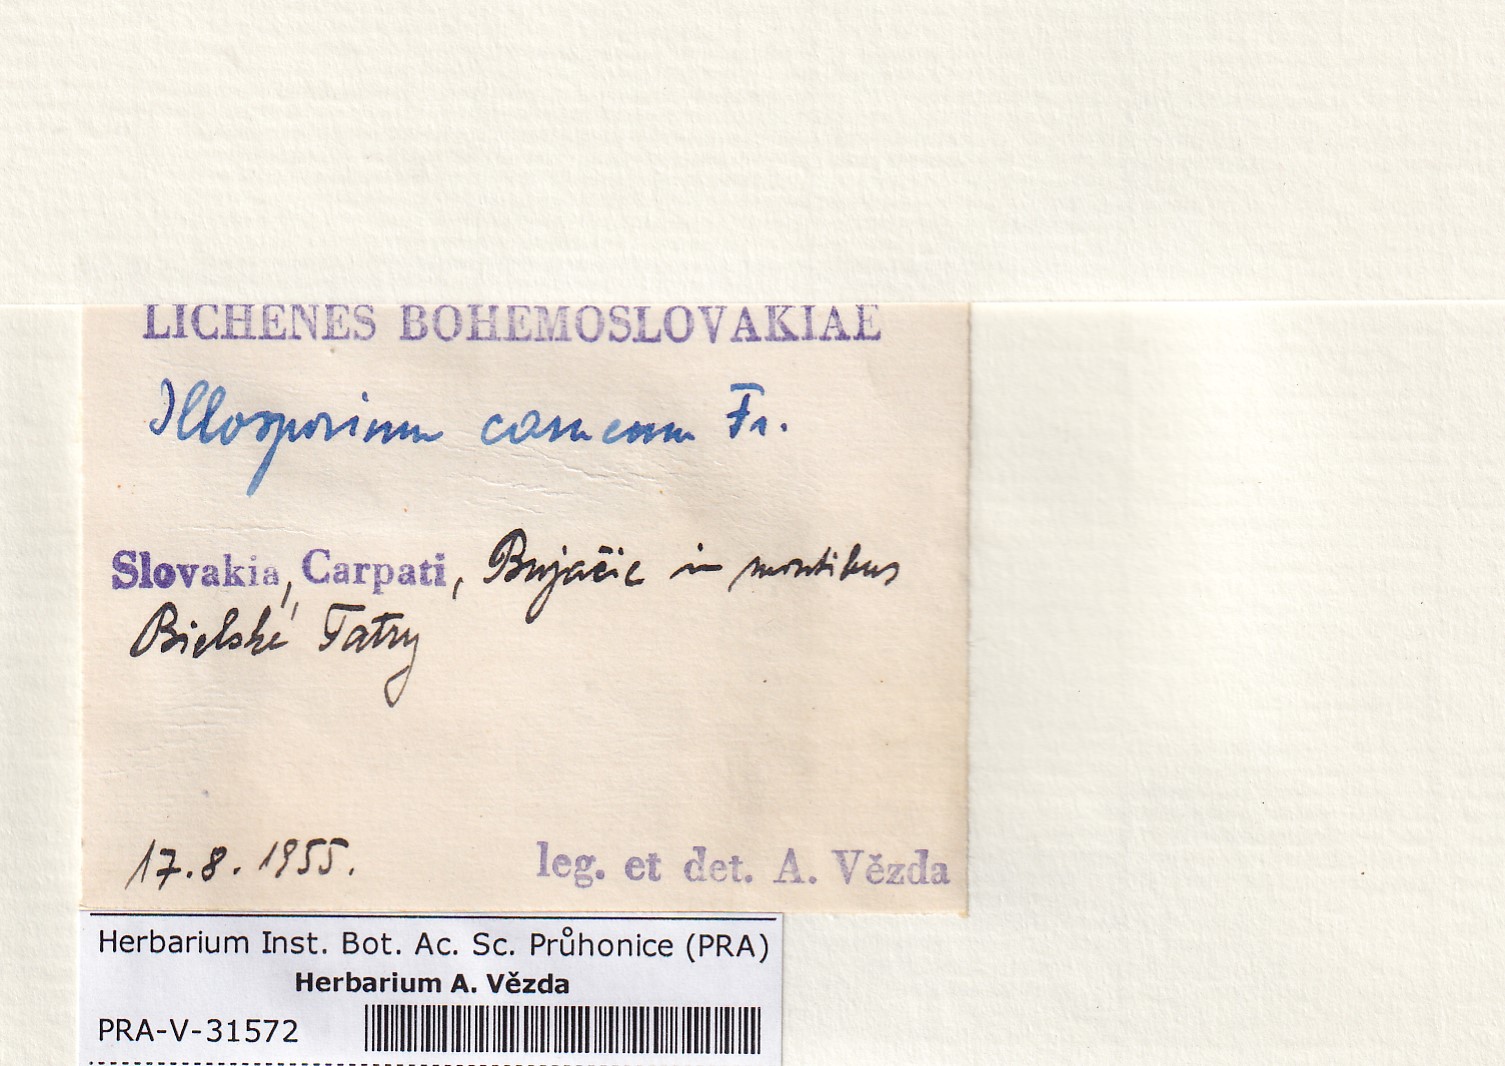 LICHENES BOHEMOSLOVAKIAE
Illosporium carneum Fr.
Slovakia, Carpati, Bujačic in montibus
Bielské Tatry
17.8.1955.
leg. et det. A. Vězda
Herbarium Inst. Bot. Ac. Sc. Průhonice (PRA)
Herbarium A. Vězda
PRA-V-31572